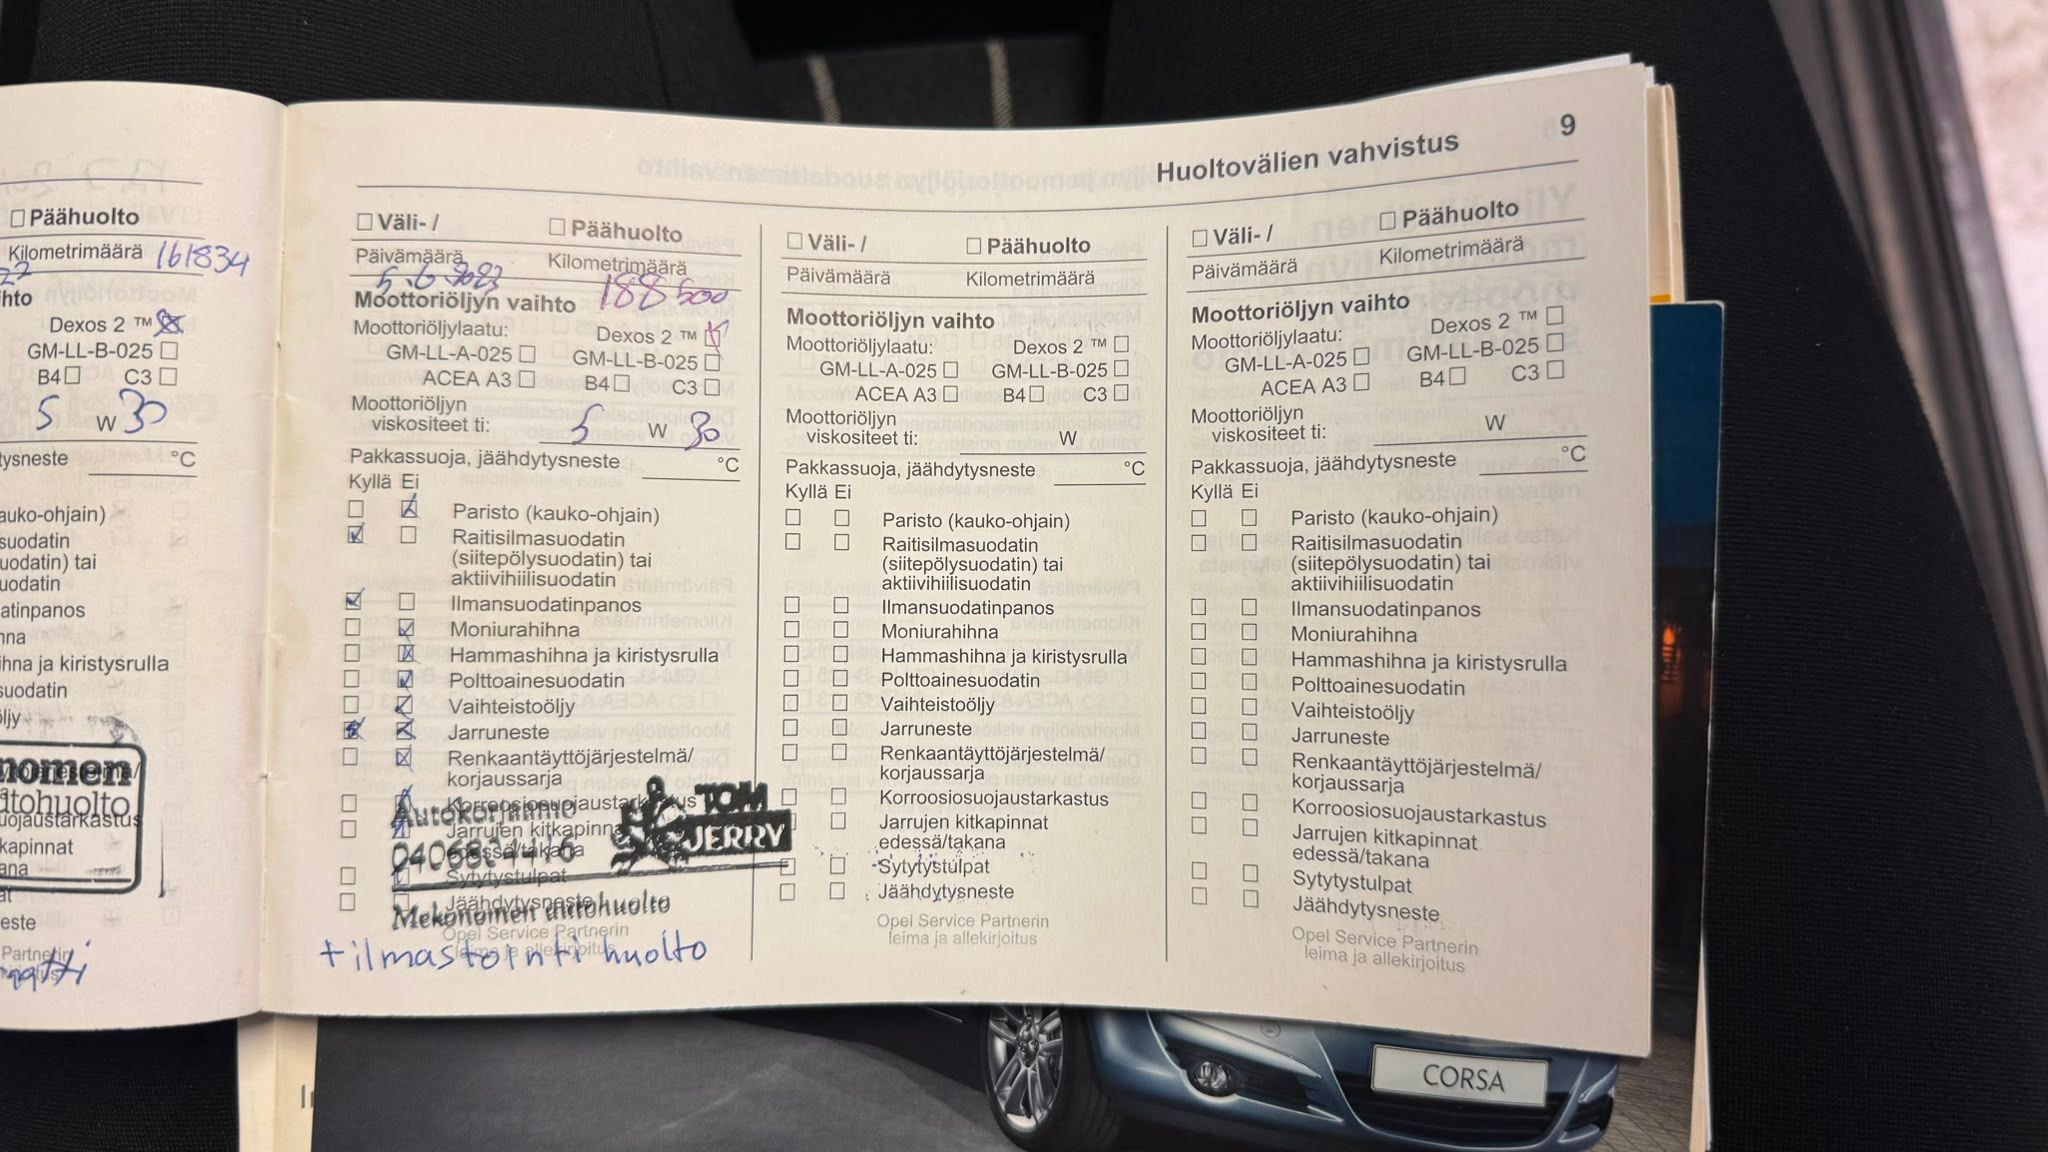 Huoltovälien vahvistus 9
☐ Päähuolto
Kilometrimäärä 161834
Dexos 2 ™ ☒
GM-LL-B-025 ☐
B4 ☐ C3 ☐
5 W 30
°C
☐ Väli- / ☐ Päähuolto
Päivämäärä Kilometrimäärä
5.6.2023 188500
Moottoriöljyn vaihto
Moottoriöljylaatu: Dexos 2 ™ ☑
GM-LL-A-025 ☐ GM-LL-B-025 ☐
ACEA A3 ☐ B4 ☐ C3 ☐
Moottoriöljyn
viskositeet ti: 5 W 30
Pakkassuoja, jäähdytysneste °C
Kyllä Ei
☐ ☑ Paristo (kauko-ohjain)
☑ ☐ Raitisilmasuodatin
(siitepölysuodatin) tai
aktiivihiilisuodatin
☑ ☐ Ilmansuodatinpanos
☐ ☑ Moniurahihna
☐ ☒ Hammashihna ja kiristysrulla
☐ ☑ Polttoainesuodatin
☐ ☑ Vaihteistoöljy
☒ ☑ Jarruneste
☐ ☒ Renkaantäyttöjärjestelmä/
korjaussarja
☐ ☑ Korroosiosuojaustarkastus
☐ ☑ Jarrujen kitkapinnat
edessä/takana
☐ ☑ Sytytystulpat
☐ ☐ Jäähdytysneste
Opel Service Partnerin
leima ja allekirjoitus
Autokorjaamo
TOM
JERRY
Mekonomen autohuolto
+ ilmastointi huolto
☐ Väli- / ☐ Päähuolto
Päivämäärä Kilometrimäärä
Moottoriöljyn vaihto
Moottoriöljylaatu: Dexos 2 ™ ☐
GM-LL-A-025 ☐ GM-LL-B-025 ☐
ACEA A3 ☐ B4 ☐ C3 ☐
Moottoriöljyn
viskositeet ti: W
Pakkassuoja, jäähdytysneste °C
Kyllä Ei
☐ ☐ Paristo (kauko-ohjain)
☐ ☐ Raitisilmasuodatin
(siitepölysuodatin) tai
aktiivihiilisuodatin
☐ ☐ Ilmansuodatinpanos
☐ ☐ Moniurahihna
☐ ☐ Hammashihna ja kiristysrulla
☐ ☐ Polttoainesuodatin
☐ ☐ Vaihteistoöljy
☐ ☐ Jarruneste
☐ ☐ Renkaantäyttöjärjestelmä/
korjaussarja
☐ ☐ Korroosiosuojaustarkastus
☐ ☐ Jarrujen kitkapinnat
edessä/takana
☐ ☐ Sytytystulpat
☐ ☐ Jäähdytysneste
Opel Service Partnerin
leima ja allekirjoitus
☐ Väli- / ☐ Päähuolto
Päivämäärä Kilometrimäärä
Moottoriöljyn vaihto
Moottoriöljylaatu: Dexos 2 ™ ☐
GM-LL-A-025 ☐ GM-LL-B-025 ☐
ACEA A3 ☐ B4 ☐ C3 ☐
Moottoriöljyn
viskositeet ti: W
Pakkassuoja, jäähdytysneste °C
Kyllä Ei
☐ ☐ Paristo (kauko-ohjain)
☐ ☐ Raitisilmasuodatin
(siitepölysuodatin) tai
aktiivihiilisuodatin
☐ ☐ Ilmansuodatinpanos
☐ ☐ Moniurahihna
☐ ☐ Hammashihna ja kiristysrulla
☐ ☐ Polttoainesuodatin
☐ ☐ Vaihteistoöljy
☐ ☐ Jarruneste
☐ ☐ Renkaantäyttöjärjestelmä/
korjaussarja
☐ ☐ Korroosiosuojaustarkastus
☐ ☐ Jarrujen kitkapinnat
edessä/takana
☐ ☐ Sytytystulpat
☐ ☐ Jäähdytysneste
Opel Service Partnerin
leima ja allekirjoitus
CORSA